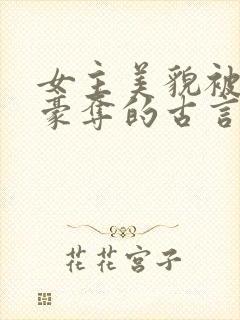 女主美貌被
豪夺的古言
花花宫子